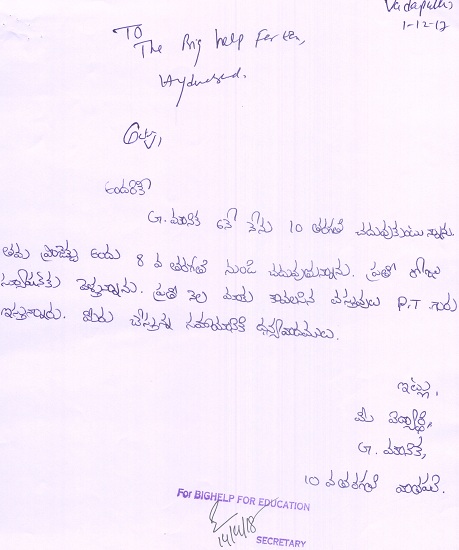 1-12-17
TO
The Big help
Hyderabad.
G. మౌనిక అనే నేను 10 తరగతి చదువుతున్నాను
8 వ తరగతి నుండి చదువుతున్నాను. ప్రతి రోజు
వస్తున్నాను. ప్రతి నెల మాకు కావలసిన వస్తువులు P.T గారు
ఇస్తున్నారు. మీరు చేస్తున్న సహాయానికి ధన్యవాదములు.
ఇట్లు,
మీ విద్యార్థి,
G. మౌనిక,
10 వ తరగతి
For BIGHELP FOR EDUCATION
14/4/18
SECRETARY